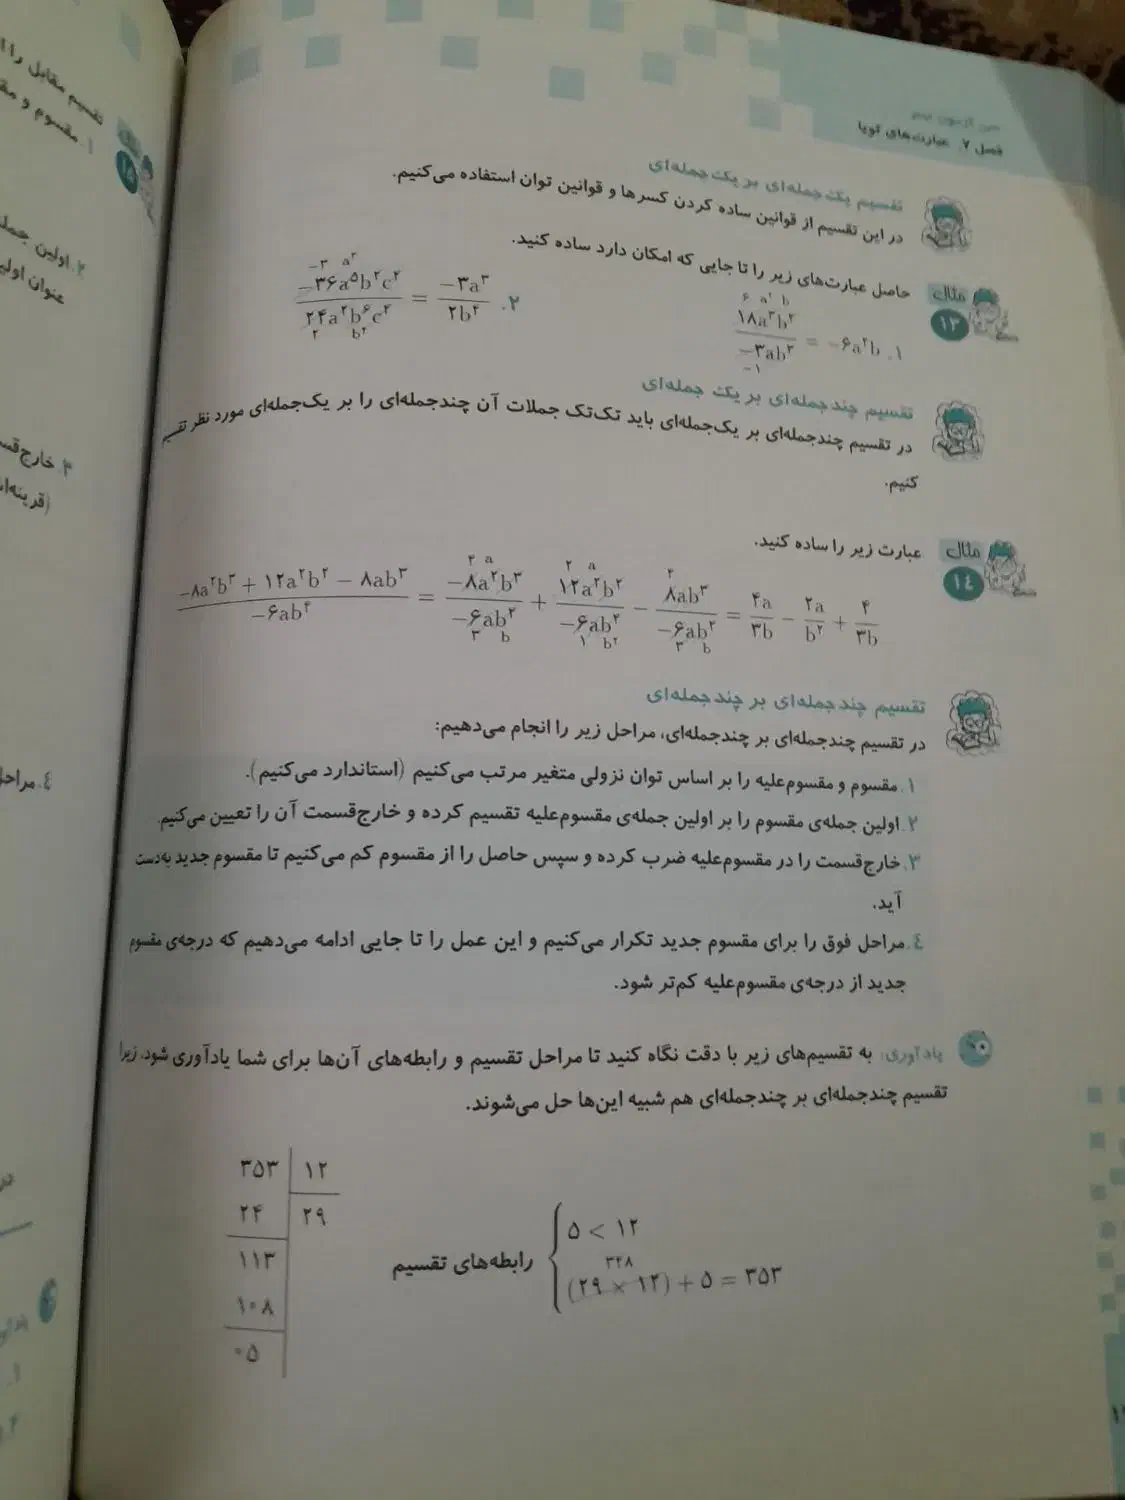 تقسیم مقابل را
۱. مقسوم و
مثال
۱۵
۲. اولین
عنوان
۳. خارج
۴. مراحل
فصل ۷. عبارت‌های گویا
تقسیم یک‌جمله‌ای بر یک‌جمله‌ای
در این تقسیم از قوانین ساده کردن کسرها و قوانین توان استفاده می‌کنیم.
مثال
۱۳
حاصل عبارت‌های زیر را تا جایی که امکان دارد ساده کنید.
۱. ۱۸a³b² / −۳ab = −۶a²b
۲. −۳۶a⁵b²c⁴ / ۲۴a²b⁶c⁴ = −۳a³ / ۲b⁴
تقسیم چندجمله‌ای بر یک جمله‌ای
در تقسیم چندجمله‌ای بر یک‌جمله‌ای باید تک‌تک جملات آن چندجمله‌ای را بر یک‌جمله‌ای مورد نظر تقسیم
کنیم.
مثال
۱۴
عبارت زیر را ساده کنید.
تقسیم چندجمله‌ای بر چندجمله‌ای
در تقسیم چندجمله‌ای بر چندجمله‌ای، مراحل زیر را انجام می‌دهیم:
۱. مقسوم و مقسوم‌علیه را بر اساس توان نزولی متغیر مرتب می‌کنیم (استاندارد می‌کنیم).
۲. اولین جمله‌ی مقسوم را بر اولین جمله‌ی مقسوم‌علیه تقسیم کرده و خارج‌قسمت آن را تعیین می‌کنیم.
۳. خارج‌قسمت را در مقسوم‌علیه ضرب کرده و سپس حاصل را از مقسوم کم می‌کنیم تا مقسوم جدید به‌دست
آید.
۴. مراحل فوق را برای مقسوم جدید تکرار می‌کنیم و این عمل را تا جایی ادامه می‌دهیم که درجه‌ی مقسوم
جدید از درجه‌ی مقسوم‌علیه کم‌تر شود.
یادآوری: به تقسیم‌های زیر با دقت نگاه کنید تا مراحل تقسیم و رابطه‌های آن‌ها برای شما یادآوری شود. زیرا
تقسیم چندجمله‌ای بر چندجمله‌ای هم شبیه این‌ها حل می‌شوند.
۳۵۳ ۱۲
۲۴ ۲۹
۱۱۳
۱۰۸
۰۵
رابطه‌های تقسیم
۵ < ۱۲
۳۴۸
(۲۹ × ۱۲) + ۵ = ۳۵۳